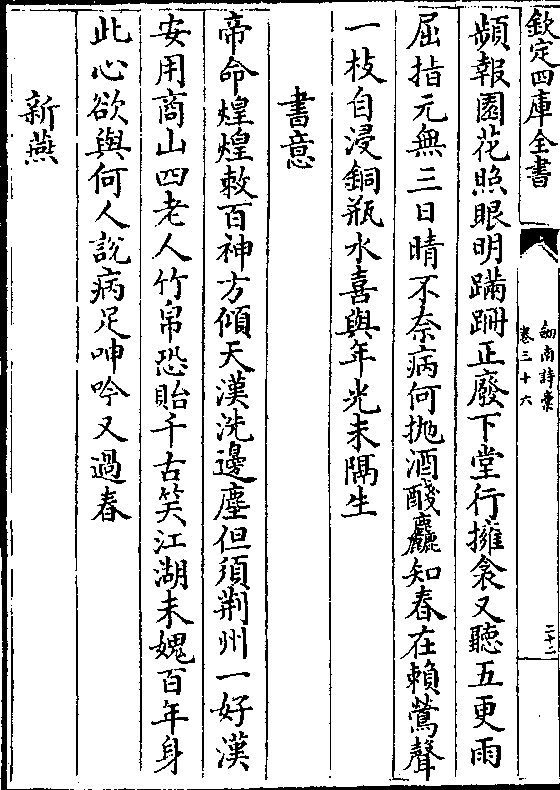 欽定四庫全書
劒南詩稾
卷三十六
二十二
頻報園花照眼明蹣跚正廢下堂行擁衾又聽五更雨
屈指元無三日晴不奈病何抛酒醆麤知春在賴鶯聲
一枝自浸銅瓶水喜與年光未隔生
書意
帝命煌煌敕百神方傾天漢洗邊塵但須荆州一好漢
安用商山四老人竹帛恐貽千古笑江湖未媿百年身
此心欲與何人説病足呻吟又過春
新燕